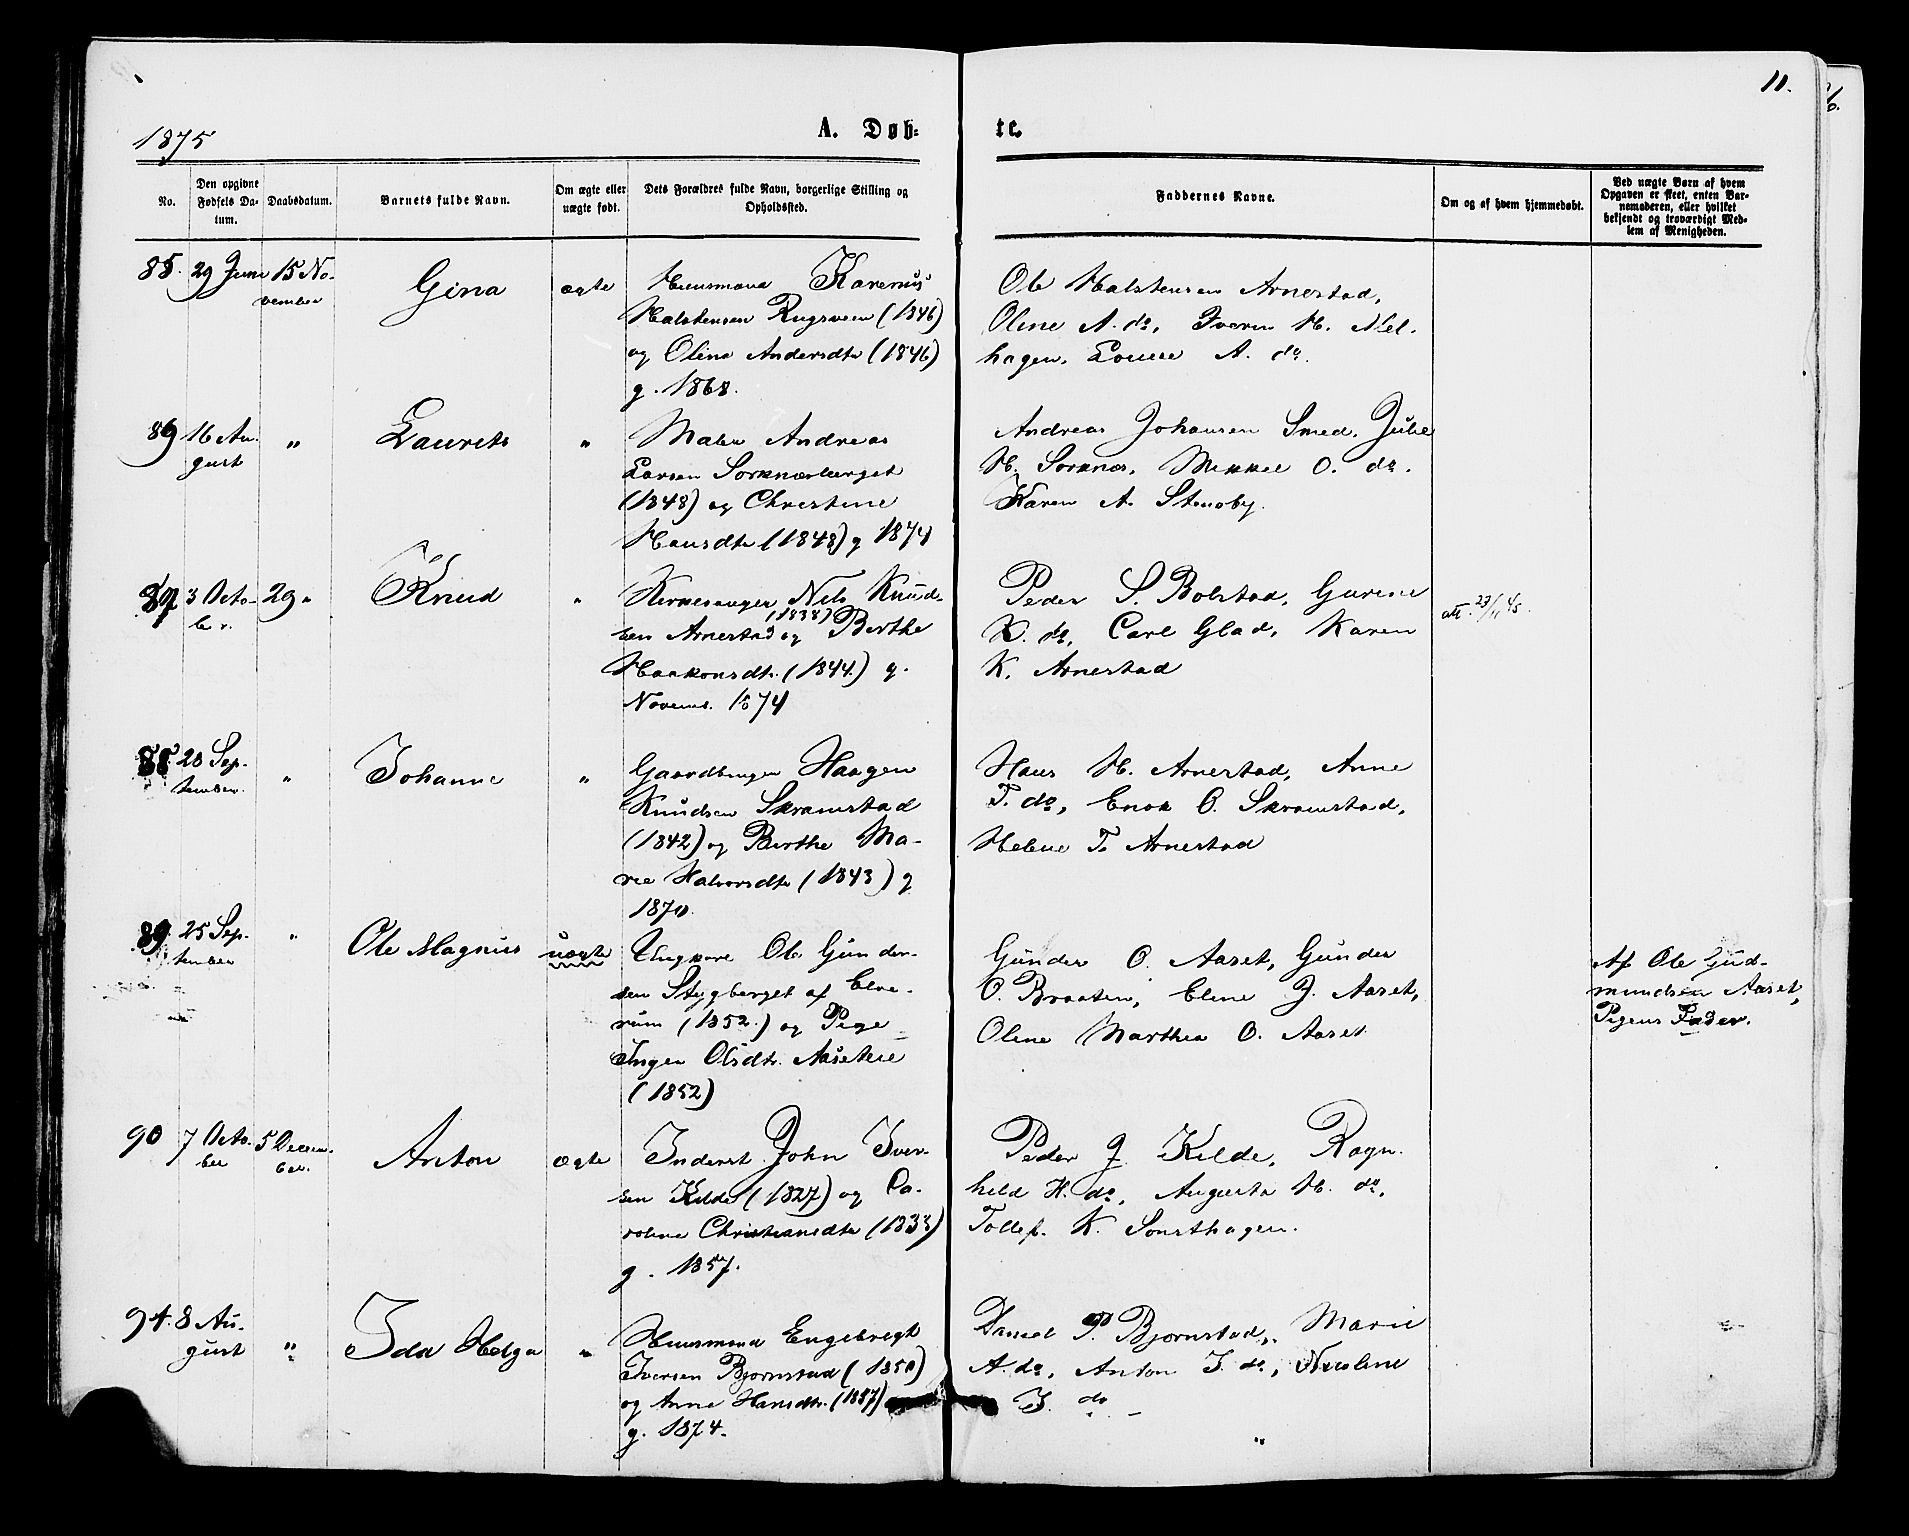 11.
1875
A. Døb-
te.
No.
Den opgivne Fødsels Da-
tum.
Daabsdatum.
Barnets fulde Navn.
Om ægte eller uægte født.
Dets Forældres fulde Navn, borgerlige Stilling og Opholdssted.
Faddernes Navne.
Om og af hvem hjemmedøbt.
Ved uægte Børn af hvem
Opgaven er skeet, enten Bar-
nemoderen, eller hvilket
bekjendt og troværdigt Med-
lem af Menigheden.
85. 29 Juni 15 No-
vember
Gina
ægte
Huusmand Karenus
Halstensen Rugsveen (1846)
og Oline Andersdtr (1846)
g. 1868.
Ole Halstensen Arnestad,
Oline A. do, Iveren H. Mel-
hagen, Louise A. do.
16 Au-
gust
"
Laurits
"
Maler Andreas
Larsen Sorknæsberget
(1848) og Christine
Hansdtr (1848) g 1874
Andreas Johansen Smed, Julie
H. Sorknæs, Mikkel O. do.
Karen A. Stenoby.
87 3 Octo-
ber.
29 "
Knud
"
Kirkesanger Nils Knud-
sen Arnestad (1838) og Berthe
Haakonsdtr. (1844.) g.
Novemb. 1874
Peder S. Bolstad, Gurine
K. do, Carl Glad, Karen
K. Arnestad
att. 23/11 45.
88 20 Sep-
tember.
"
Johanne
"
Gaardbruger Haagen
Knudsen Skramstad
(1842) og Berthe Ma-
rie Halvorsdtr (1843) g
1870.
Hans H. Arnestad, Anne
T. do, Enok O. Skramstad,
Helene T. Arnestad
89. 25 Sep-
tember
"
Ole Magnus
uægte
Ungkarl Ole Gunder-
sen Stygberget af Elve-
rum (1852.) og Pige
Inger Olsdtr. Aaseteie
(1852)
Gunder O. Aaset, Gunder
O. Braaten, Eline J. Aaset,
Oline Marthea O. Aaset
Af Ole Gud-
mundsen Aaset,
Pigens Fader.
90 7 Octo-
ber
5 Decem-
ber.
Anton
ægte
Inderst John Iver-
sen Kilde (1827) og Ca-
roline Christiansdtr (1833)
g. 1857.
Peder J. Kilde, Ragn-
hild H. do, Augusta H. do,
Tollef K. Sorsthagen.
8 Au-
gust
"
Ida Helga
"
Huusmand Engebregt
Iversen Bjørnstad (1850)
og Anne Hansdtr. (1847)
g. 1874.
Daniel P. Bjørnstad, Marie
A. do, Anton I. do, Nicoline
I. do
"